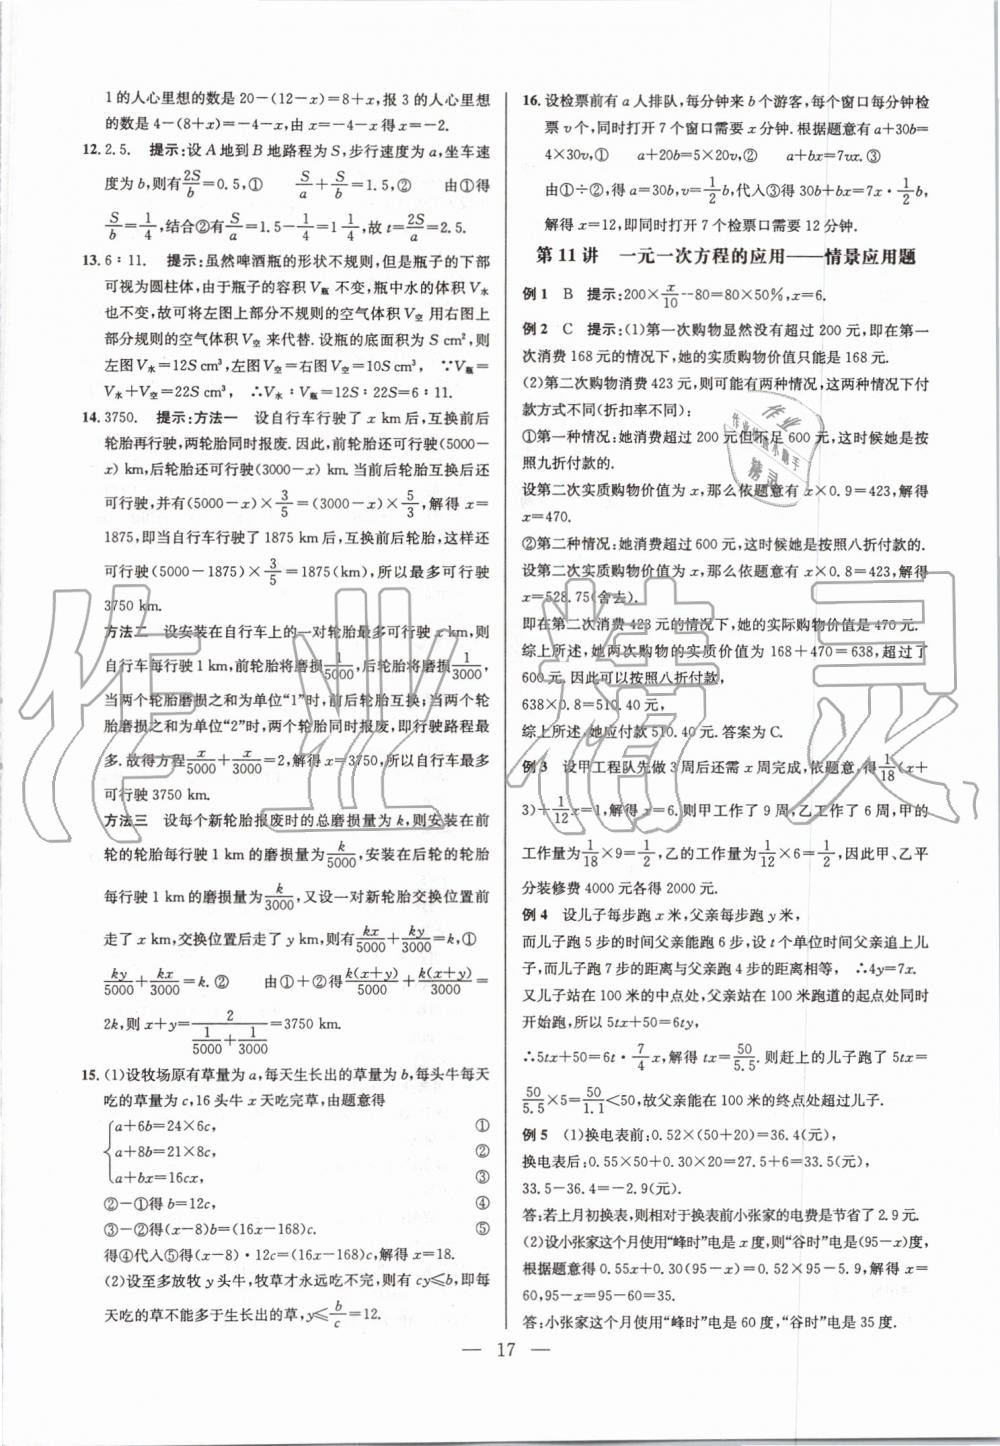 1的人心里想的数是20-(12-x)=8+x,报3的人心里想
的数是4-(8+x)=-4-x,由x=-4-x得x=-2.
12. 2.5. 提示:设A地到B地路程为S,步行速度为a,坐车速
度为b,则有2S/b=0.5,① S/a+S/b=1.5,② 由①得
S/b=1/4,结合②有S/a=1.5-1/4=1 1/4,故t=2S/a=2.5.
13. 6∶11. 提示:虽然啤酒瓶的形状不规则,但是瓶子的下部
可视为圆柱体,由于瓶子的容积V瓶不变,瓶中水的体积V水
也不变,故可将左图上部分不规则的空气体积V空用右图上
部分规则的空气体积V空来代替.设瓶的底面积为S cm²,则
左图V水=12S cm³,左图V空=右图V空=10S cm³, ∵V瓶=
V水+V空=22S cm³, ∴V水∶V瓶=12S∶22S=6∶11.
14. 3750. 提示:方法一 设自行车行驶了x km后,互换前后
轮胎再行驶,两轮胎同时报废.因此,前轮胎还可行驶(5000-
x) km,后轮胎还可行驶(3000-x) km.当前后轮胎互换后还
可行驶,并有(5000-x)×3/5=(3000-x)×5/3,解得x=
1875,即当自行车行驶了1875 km后,互换前后轮胎,这样还
可行驶(5000-1875)×3/5=1875(km),所以最多可行驶
3750 km.
方法二 设安装在自行车上的一对轮胎最多可行驶x km,则
自行车每行驶1 km,前轮胎将磨损1/5000,后轮胎将磨损1/3000,
当两个轮胎磨损之和为单位“1”时,前后轮胎互换;当两个轮
胎磨损之和为单位“2”时,两个轮胎同时报废,即行驶路程最
多.故得方程x/5000+x/3000=2,解得x=3750,所以自行车最多
可行驶3750 km.
方法三 设每个新轮胎报废时的总磨损量为k,则安装在前
轮的轮胎每行驶1 km的磨损量为k/5000,安装在后轮的轮胎
每行驶1 km的磨损量为k/3000,又设一对新轮胎交换位置前
走了x km,交换位置后走了y km,则有kx/5000+ky/3000=k,①
ky/5000+kx/3000=k. ② 由①+②得k(x+y)/5000+k(x+y)/3000=
2k,则x+y=2/(1/5000+1/3000)=3750 km.
15. (1)设牧场原有草量为a,每天生长出的草量为b,每头牛每天
吃的草量为c,16头牛x天吃完草,由题意得
a+6b=24×6c, ①
a+8b=21×8c, ②
a+bx=16cx, ③
②-①得b=12c, ④
③-②得(x-8)b=(16x-168)c. ⑤
得④代入⑤得(x-8)·12c=(16x-168)c,解得x=18.
(2)设至多放牧y头牛,牧草才永远吃不完,则有cy≤b,即每
天吃的草不能多于生长出的草,y≤b/c=12.
16. 设检票前有a人排队,每分钟来b个游客,每个窗口每分钟检
票v个,同时打开7个窗口需要x分钟.根据题意有a+30b=
4×30v,① a+20b=5×20v,② a+bx=7vx.③
由①÷②,得a=30b,v=1/2b,代入③得30b+bx=7x·1/2b,
解得x=12,即同时打开7个检票口需要12分钟.
第11讲 一元一次方程的应用——情景应用题
例1 B 提示:200×x/10-80=80×50%,x=6.
例2 C 提示:(1)第一次购物显然没有超过200元,即在第一
次消费168元的情况下,她的实质购物价值只能是168元.
(2)第二次购物消费423元,则可能有两种情况,这两种情况下付
款方式不同(折扣率不同):
①第一种情况:她消费超过200元但不足600元,这时候她是
按照九折付款的.
设第二次实质购物价值为x,那么依题意有x×0.9=423,解得
x=470.
②第二种情况:她消费超过600元,这时候她是按照八折付款的.
设第二次实质购物价值为x,那么依题意有x×0.8=423,解得
x=528.75(舍去).
即在第二次消费423元的情况下,她的实际购物价值是470元.
综上所述,她两次购物的实质价值为168+470=638,超过了
600元.因此可以按照八折付款,
638×0.8=510.40元,
综上所述,她应付款510.40元.答案为C.
例3 设甲工程队先做3周后还需x周完成,依题意,得1/18(x+
3)+1/12x=1,解得x=6.则甲工作了9周,乙工作了6周,甲的
工作量为1/18×9=1/2,乙的工作量为1/12×6=1/2,因此甲、乙平
分装修费4000元各得2000元.
例4 设儿子每步跑x米,父亲每步跑y米,
而儿子跑5步的时间父亲能跑6步,设t个单位时间父亲追上儿
子,因儿子跑7步的距离与父亲跑4步的距离相等, ∴4y=7x.
又儿子站在100米的中点处,父亲站在100米跑道的起点处同时
开始跑,所以5tx+50=6ty,
∴5tx+50=6t·7/4x,解得tx=50/5.5.则赶上的儿子跑了5tx=
50/5.5×5=50/1.1<50,故父亲能在100米的终点处超过儿子.
例5 (1)换电表前:0.52×(50+20)=36.4(元),
换电表后:0.55×50+0.30×20=33.5(元),
33.5-36.4=-2.9(元).
答:若上月初换表,则相对于换表前小张家的电费是节省了2.9元.
(2)设小张家这个月使用“峰时”电是x度,则“谷时”电是(95-x)度,
根据题意得0.55x+0.30(95-x)=0.52×95-5.9,解得x=
60,95-x=95-60=35.
答:小张家这个月使用“峰时”电是60度,“谷时”电是35度.
— 17 —
作业精灵